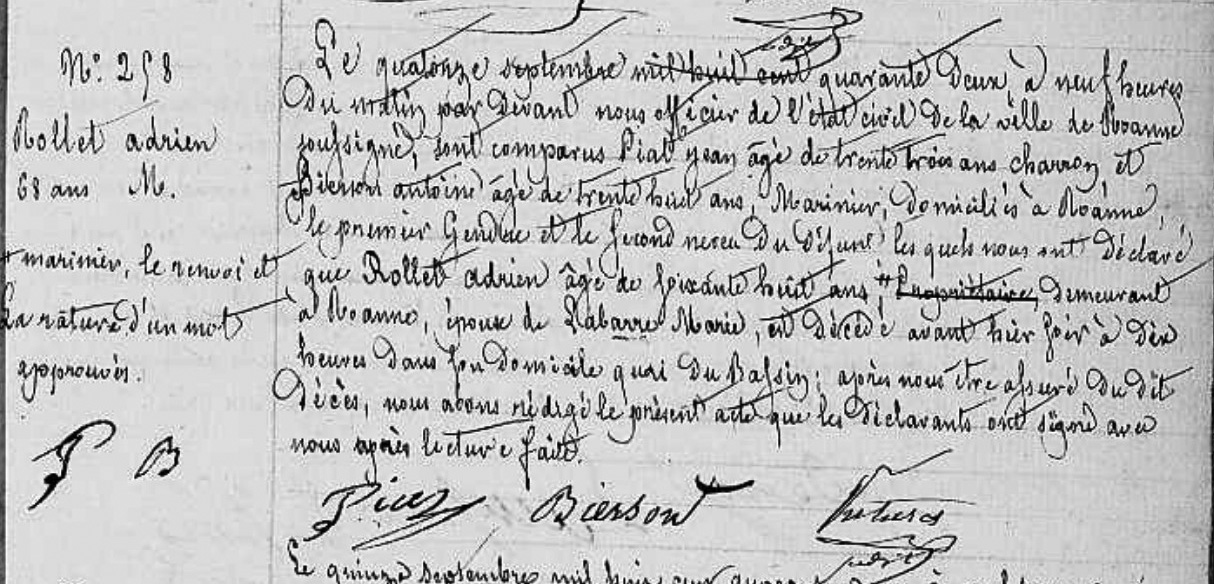 N° 258
Rollet adrien
68 ans M.
# marinier, le renvoi et
La rature d'un mot
approuvés.
P B
Le quatorze septembre mil huit cent quarante deux, à neuf heures
Du matin par devant nous officier de l'état civil De la ville de Roanne
soussigné, sont comparus Piat jean âgé de trente trois ans charron et
Bierson antoine âgé de trente huit ans, Marinier, Domiciliés à Roanne,
le premier Gendre et le second neveu Du Défunt les quels nous ont Déclaré
que Rollet adrien âgé de soixante huit ans, # Propriétaire, Demeurant
à Roanne, époux de Labarre Marie, est Décédé avant hier soir à Dix
heures Dans son Domicile quai Du Bassin; après nous être assuré Du dit
Décès, nous avons rédigé le présent acte que les Déclarants ont signé avec
nous après lecture faite.
Piat Bierson
Le quinze septembre mil huit cent